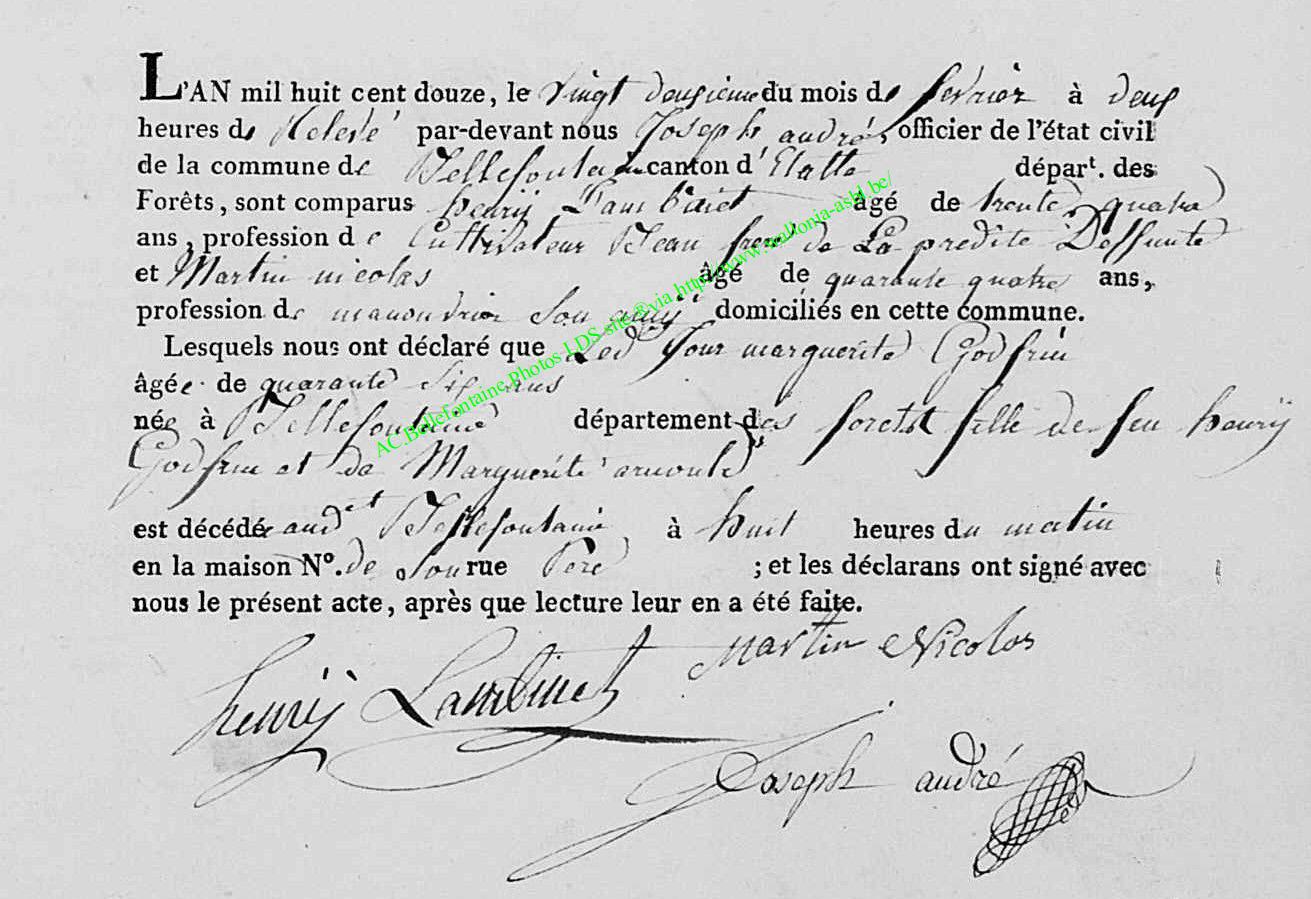 L'AN mil huit cent douze, le vingt deusieme du mois de fevrier à deux
heures de Relevé par-devant nous Joseph andré, officier de l'état civil
de la commune de Bellefontaine canton d'Etalle départ. des
Forêts, sont comparus henrÿ Lambinet âgé de trente quatre
ans, profession de Cultivateur Beau frere de La predite Deffunte
et Martin nicolas âgé de quarante quatre ans,
profession de manouvrier Son amÿ domiciliés en cette commune.
Lesquels nous ont déclaré que Led Jour marguerite Godfrin
âgée de quarante Six ans
née à Bellefontaine département des forets fille de feu henrÿ
Godfrin et de Marguerite arnould
est décédée audet Bellefontaine à huit heures du matin
en la maison N.o de Son rue Pere ; et les déclarans ont signé avec
nous le présent acte, après que lecture leur en a été faite.
Martin Nicolas
henrÿ Lambinet
Joseph andré
AC.Bellefontaine.Photos LDS site®via http://www.wallonia-asbl.be/